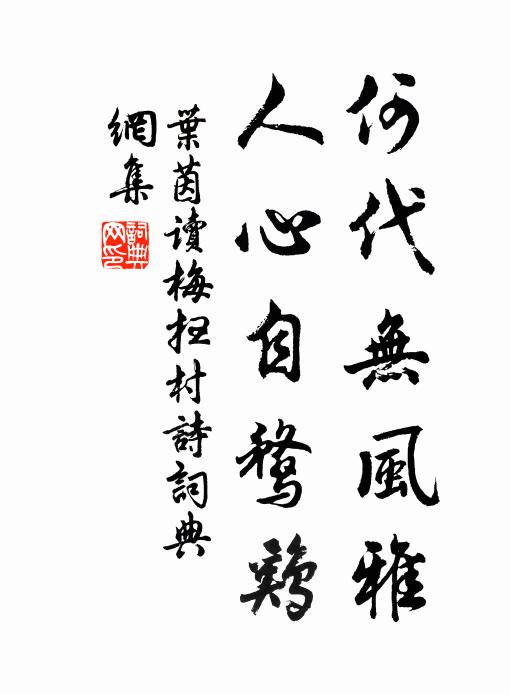 何代無風雅
人心自鶩鷄
葉茵讀梅扭村詩詞典
網集
詞典
网印